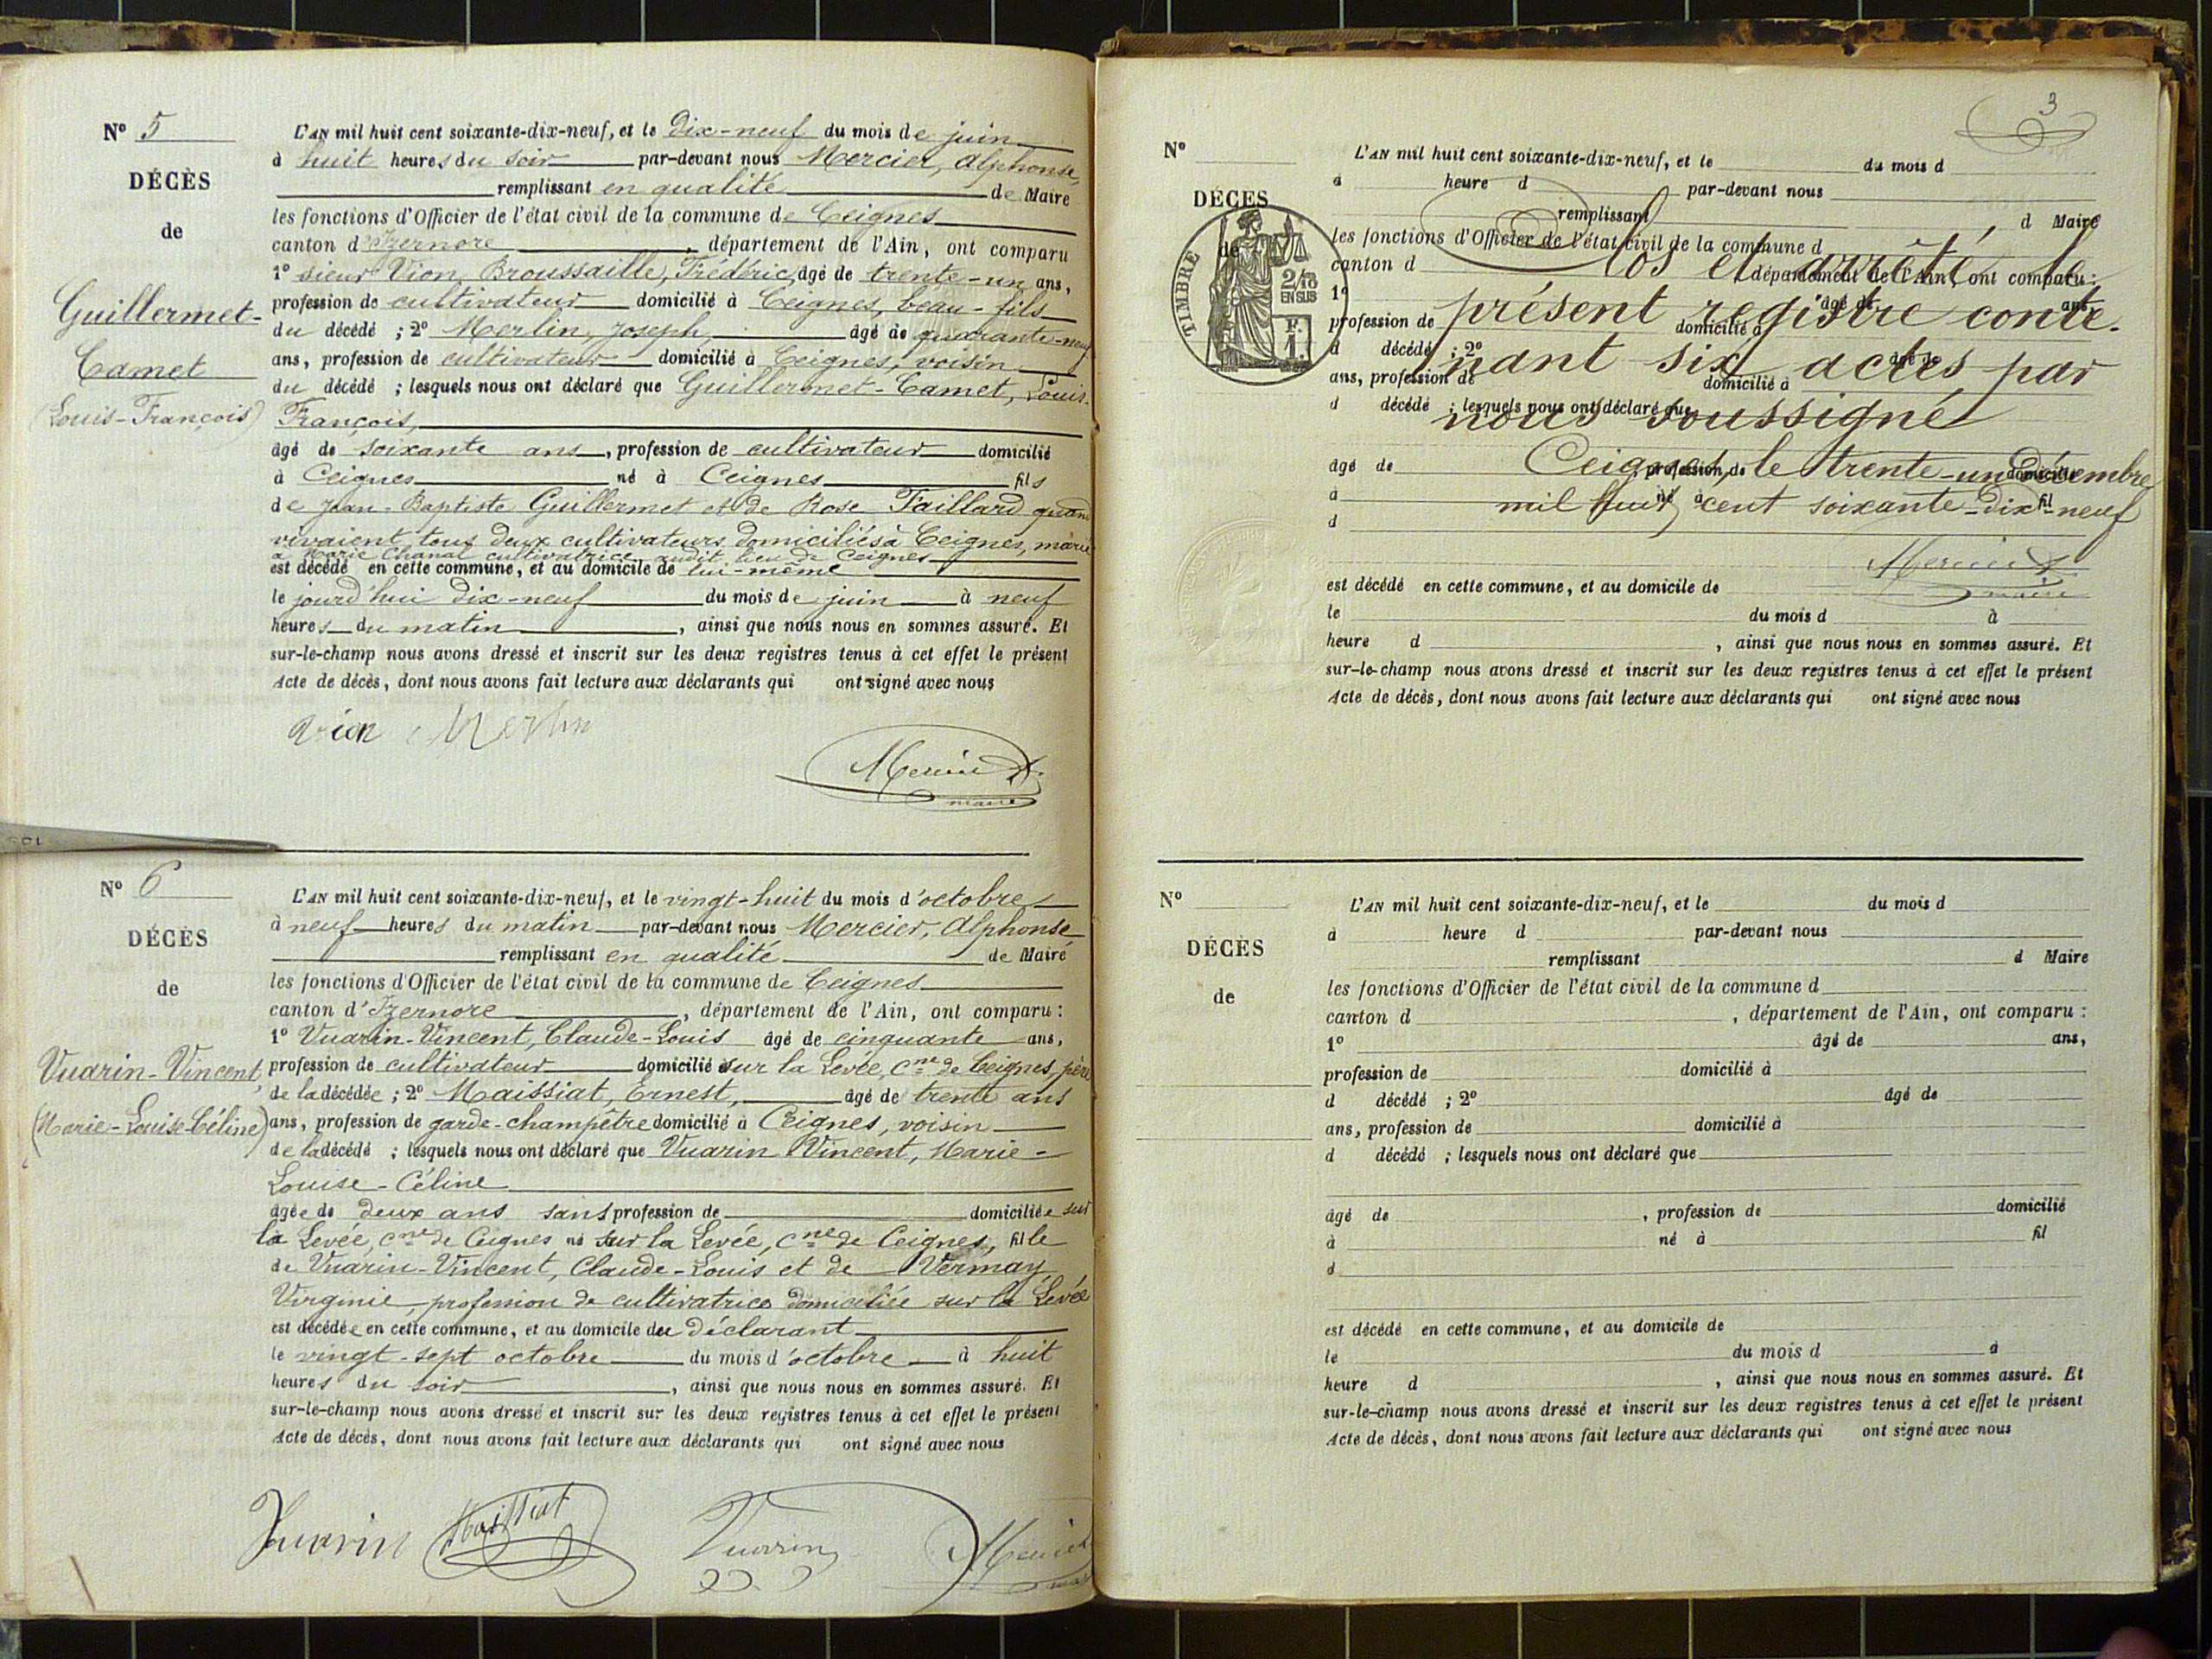 N° 5
DÉCÈS
de
Guillermet-
Camet
(Louis-François)
L'AN mil huit cent soixante-dix-neuf, et le dix-neuf du mois de juin
à huit heures du soir par-devant nous Mercier, Alphonse,
remplissant en qualité de Maire
les fonctions d'Officier de l'état civil de la commune de Ceignes
canton d'Izernore, département de l'Ain, ont comparu
1° sieur Vion Broussaille, Frédéric, âgé de trente-un ans,
profession de cultivateur domicilié à Ceignes, beau-fils
du décédé ; 2° Merlin, Joseph, âgé de quarante-neuf
ans, profession de cultivateur domicilié à Ceignes, voisin
du décédé ; lesquels nous ont déclaré que Guillermet-Camet, Louis-
François,
âgé de soixante ans, profession de cultivateur domicilié
à Ceignes né à Ceignes fils
de Jean-Baptiste Guillermet et de Rose Taillard quand
vivaient tous deux cultivateurs domiciliés à Ceignes, marié
à Marie Chanal cultivatrice audit lieu de Ceignes
est décédé en cette commune, et au domicile de lui-même
le jourd'hui dix-neuf du mois de juin à neuf
heures du matin, ainsi que nous nous en sommes assuré. Et
sur-le-champ nous avons dressé et inscrit sur les deux registres tenus à cet effet le présent
Acte de décès, dont nous avons fait lecture aux déclarants qui ont signé avec nous
Vion Merlin
Mercier A.
maire
N° 6
DÉCÈS
de
Vuarin-Vincent,
(Marie-Louise-Céline)
L'AN mil huit cent soixante-dix-neuf, et le vingt-huit du mois d'octobre
à neuf heures du matin par-devant nous Mercier, Alphonse
remplissant en qualité de Maire
les fonctions d'Officier de l'état civil de la commune de Ceignes
canton d'Izernore, département de l'Ain, ont comparu :
1° Vuarin-Vincent, Claude-Louis âgé de cinquante ans,
profession de cultivateur domicilié sur la Levée, Cne de Ceignes, père
de la décédée ; 2° Maissiat, Ernest, âgé de trente ans
ans, profession de garde-champêtre domicilié à Ceignes, voisin
de la décédé ; lesquels nous ont déclaré que Vuarin Vincent, Marie-
Louise-Céline
âgée de deux ans sans profession de domiciliée sur
la Levée, Cne de Ceignes né sur la Levée, Cne de Ceignes, fille
de Vuarin-Vincent, Claude-Louis et de Vermay
Virginie, profession de cultivatrice domiciliée sur la Levée
est décédée en cette commune, et au domicile du déclarant
le vingt-sept octobre du mois d'octobre à huit
heures du soir, ainsi que nous nous en sommes assuré. Et
sur-le-champ nous avons dressé et inscrit sur les deux registres tenus à cet effet le présent
Acte de décès, dont nous avons fait lecture aux déclarants qui ont signé avec nous
Vuarin Maissiat Vuarin Mercier
3
N°
DÉCES
de
TIMBRE
2/10
EN SUS
F.
1.
L'AN mil huit cent soixante-dix-neuf, et le du mois d
à heure d par-devant nous
remplissant, d Maire
les fonctions d'Officier de l'état civil de la commune d
canton d département de l'Ain, ont comparu :
1° âgé de ans,
profession de domicilié à
d décédé ; 2° âgé de
ans, profession de domicilié à
d décédé ; lesquels nous ont déclaré que
Clos et arrêté le
présent registre conte-
nant six actes par
nous soussigné
Ceignes, le trente-un Décembre
mil huit cent soixante-dix-neuf
Mercier A
maire
âgé de profession de domicilié
à né à fil
d
est décédé en cette commune, et au domicile de
le du mois d à
heure d, ainsi que nous nous en sommes assuré. Et
sur-le-champ nous avons dressé et inscrit sur les deux registres tenus à cet effet le présent
Acte de décès, dont nous avons fait lecture aux déclarants qui ont signé avec nous
N°
DÉCÈS
de
L'AN mil huit cent soixante-dix-neuf, et le du mois d
à heure d par-devant nous
remplissant d Maire
les fonctions d'Officier de l'état civil de la commune d
canton d, département de l'Ain, ont comparu :
1° âgé de ans,
profession de domicilié à
d décédé ; 2° âgé de
ans, profession de domicilié à
d décédé ; lesquels nous ont déclaré que
âgé de, profession de domicilié
à né à fil
d
est décédé en cette commune, et au domicile de
le du mois d à
heure d, ainsi que nous nous en sommes assuré. Et
sur-le-champ nous avons dressé et inscrit sur les deux registres tenus à cet effet le présent
Acte de décès, dont nous avons fait lecture aux déclarants qui ont signé avec nous